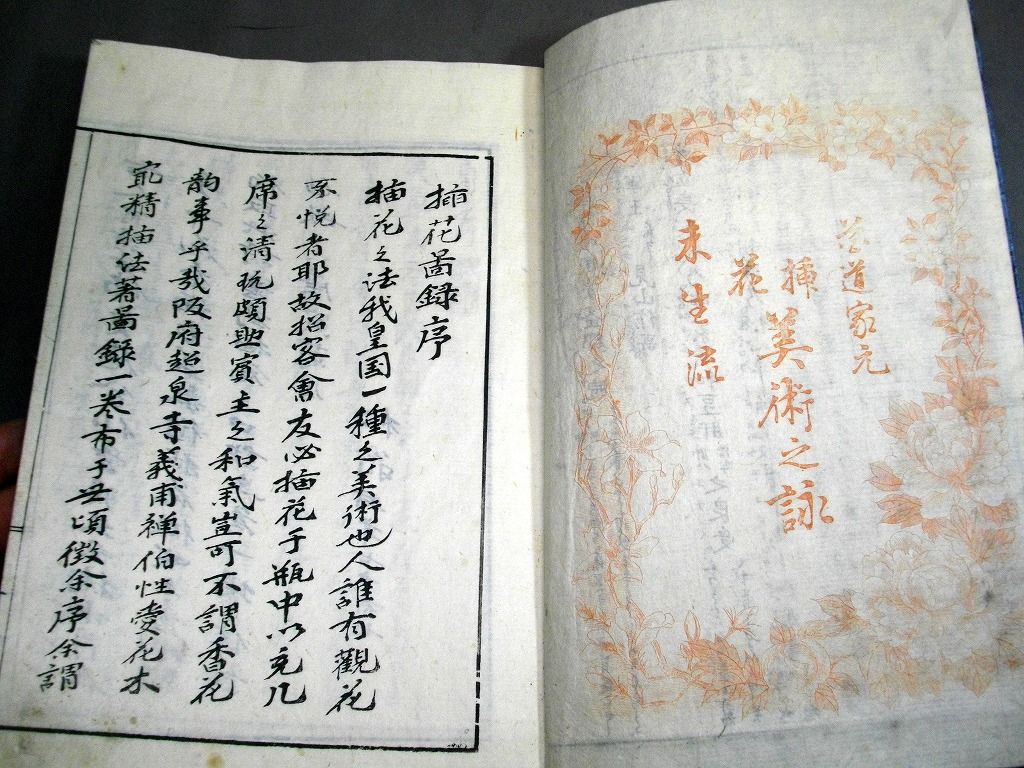 華道家元
挿花
美術之詠
未生流
插花圖録序
插花之法我皇国一種之美術也人誰有觀花
不悦者耶故招客會友必插花于瓶中以充几
席之清玩頗助賓主之和氣豈可不謂香花
韵事乎哉阪府超泉寺義甫禅伯性愛花木
最精插法著圖録一巻布于世頃徴余序余謂